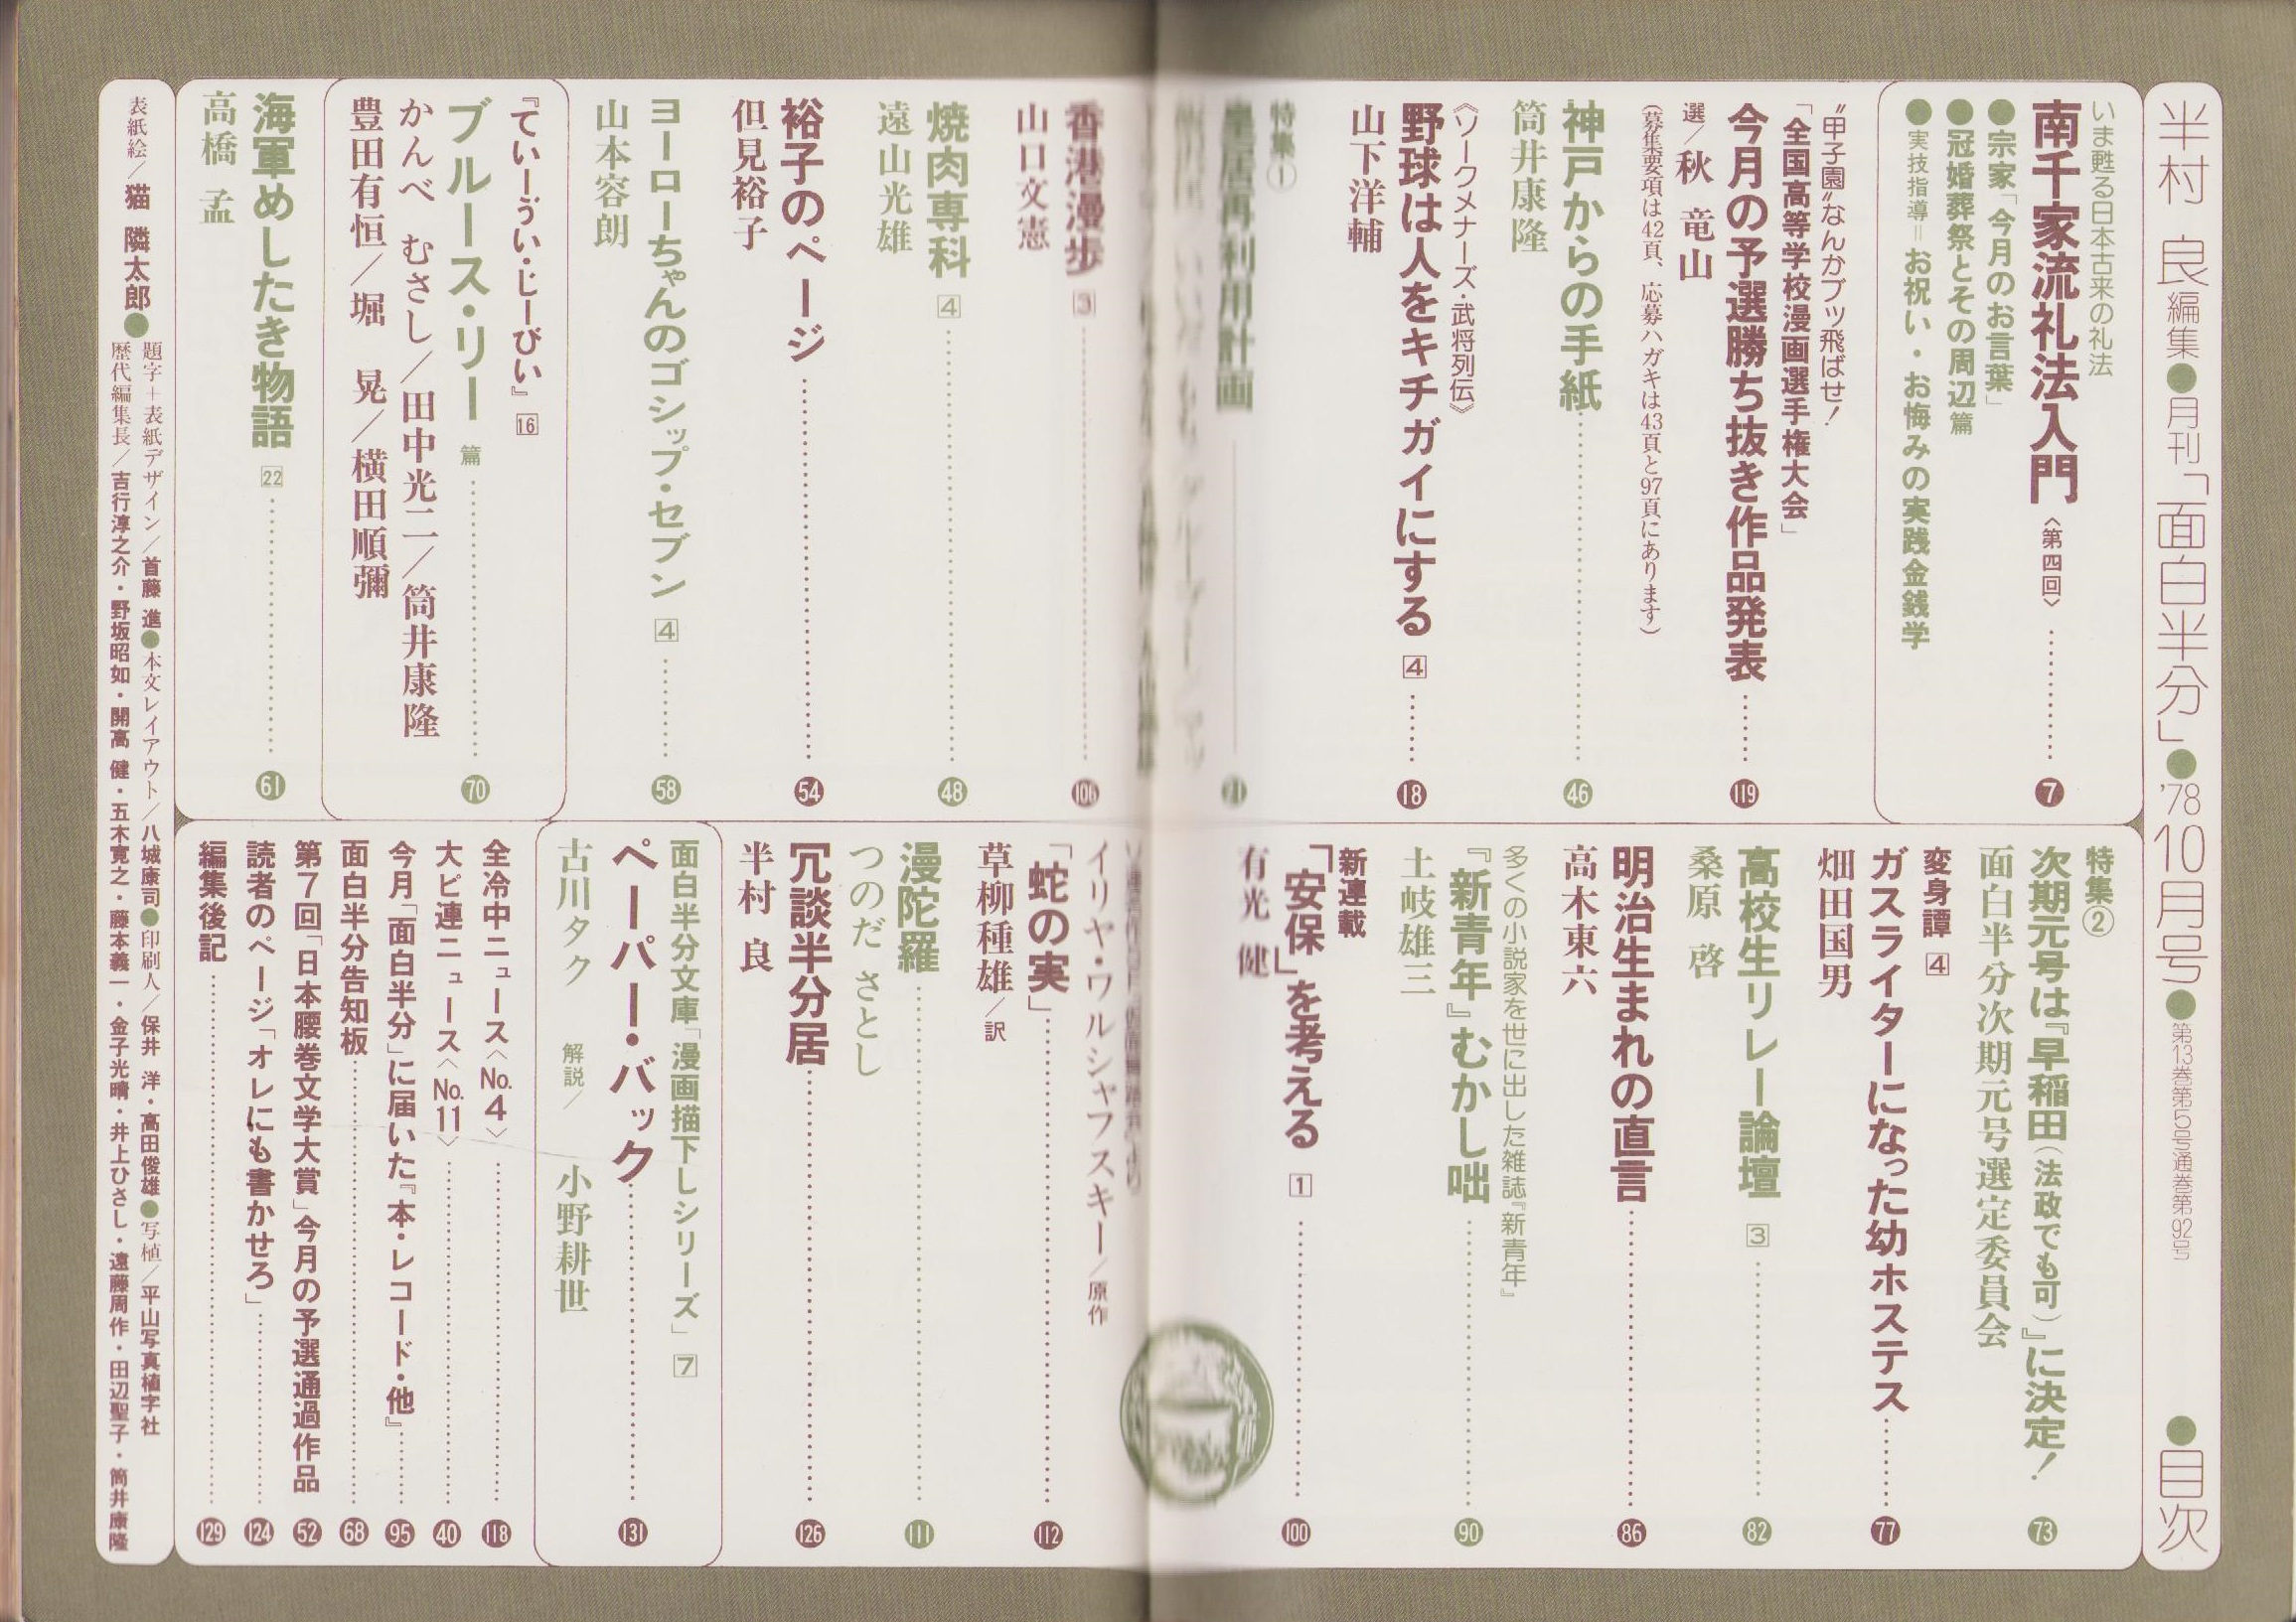 半村 良編集●月刊「面白半分」●'78 10月号●第13巻第5号通巻第92号 ●目次
いま甦る日本古来の礼法
南千家流礼法入門〈第四回〉…………7
●宗家「今月のお言葉」
●冠婚葬祭とその周辺篇
●実技指導=お祝い・お悔みの実践金銭学
"甲子園"なんかブッ飛ばせ!
「全国高等学校漫画選手権大会」
今月の予選勝ち抜き作品発表…………119
選/秋 竜山
(募集要項は42頁、応募ハガキは43頁と97頁にあります)
神戸からの手紙…………46
筒井康隆
《ソークメナーズ・武将列伝》
野球は人をキチガイにする 4…………18
山下洋輔
特集①
皇居再利用計画…………21
香港漫歩 3…………106
山口文憲
焼肉専科 4…………48
遠山光雄
裕子のページ…………54
但見裕子
ヨーローちゃんのゴシップ・セブン 4…………58
山本容朗
『てぃーう゛ぃ・じーびい』 16
ブルース・リー 篇…………70
かんべ むさし/田中光二/筒井康隆
豊田有恒/堀 晃/横田順彌
海軍めしたき物語 22…………61
高橋 孟
特集②
次期元号は『早稲田(法政でも可)』に決定!…………73
面白半分次期元号選定委員会
変身譚 4
ガスライターになった幼ホステス…………77
畑田国男
高校生リレー論壇 3…………82
桑原 啓
明治生まれの直言…………86
高木東六
多くの小説家を世に出した雑誌『新青年』
『新青年』むかし咄…………90
土岐雄三
新連載
「安保」を考える 1…………100
有光 健
イリヤ・ワルシャフスキー/原作
「蛇の実」…………112
草柳種雄/訳
漫陀羅…………111
つのだ さとし
冗談半分居…………126
半村 良
面白半分文庫「漫画描下しシリーズ」 7
ペーパー・バック…………131
古川タク 解説/小野耕世
全冷中ニュース〈No.4〉…………118
大ピ連ニュース〈No.11〉…………40
今月「面白半分」に届いた『本・レコード・他』…………95
面白半分告知板…………68
第7回「日本腰巻文学大賞」今月の予選通過作品 52
読者のページ「オレにも書かせろ」…………124
編集後記…………129
表紙絵/猫 隣太郎●題字+表紙デザイン/首藤 進●本文レイアウト/八城康司●印刷人/保井 洋・高田俊雄●写植/平山写真植字社
歴代編集長/吉行淳之介・野坂昭如・開高 健・五木寛之・藤本義一・金子光晴・井上ひさし・遠藤周作・田辺聖子・筒井康隆